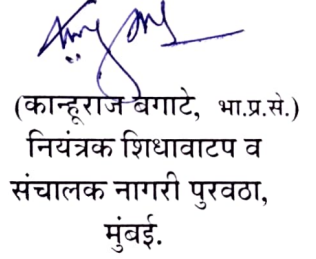 (कान्हूराज बगाटे, भा.प्र.से.)
नियंत्रक शिधावाटप व
संचालक नागरी पुरवठा,
मुंबई.